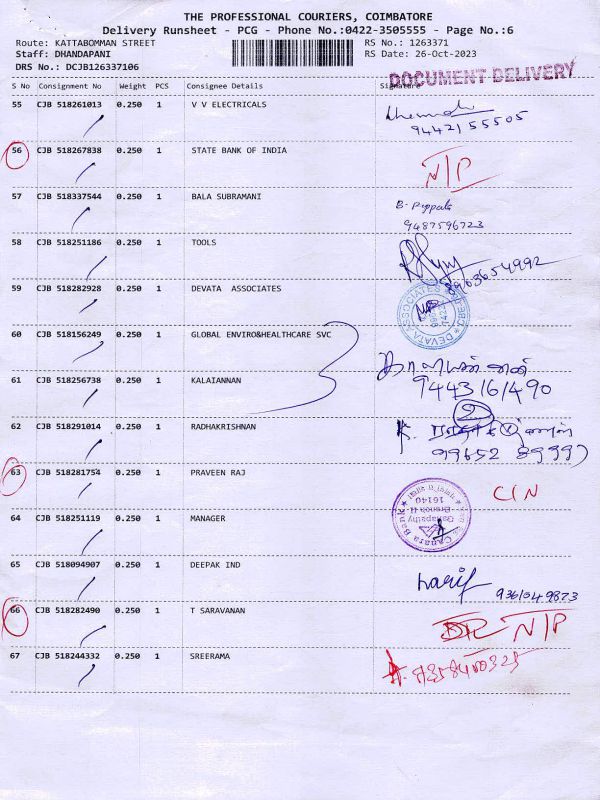 THE PROFESSIONAL COURIERS, COIMBATORE
Delivery Runsheet - PCG - Phone No.:0422-3505555 - Page No.:6
Route: KATTABOMMAN STREET
RS No.: 1263371
Staff: DHANDAPANI
RS Date: 26-Oct-2023
DRS No.: DCJB126337106
DOCUMENT DELIVERY
S No Consignment No Weight PCS Consignee Details Signature
55 CJB 518261013 0.250 1 V V ELECTRICALS
9442155505
56 CJB 518267838 0.250 1 STATE BANK OF INDIA N/P
57 CJB 518337544 0.250 1 BALA SUBRAMANI
9487596723
58 CJB 518251186 0.250 1 TOOLS
8963654992
59 CJB 518282928 0.250 1 DEVATA ASSOCIATES
DEVATA ASSOCIATES
60 CJB 518156249 0.250 1 GLOBAL ENVIRO&HEALTHCARE SVC
61 CJB 518256738 0.250 1 KALAIANNAN
9443161490
2
62 CJB 518291014 0.250 1 RADHAKRISHNAN
63 CJB 518281754 0.250 1 PRAVEEN RAJ C/N
64 CJB 518251119 0.250 1 MANAGER
Canara Bank
Ganapathy
Branch II
16140
65 CJB 518094907 0.250 1 DEEPAK IND
9361049873
66 CJB 518282490 0.250 1 T SARAVANAN N/P
67 CJB 518244332 0.250 1 SREERAMA